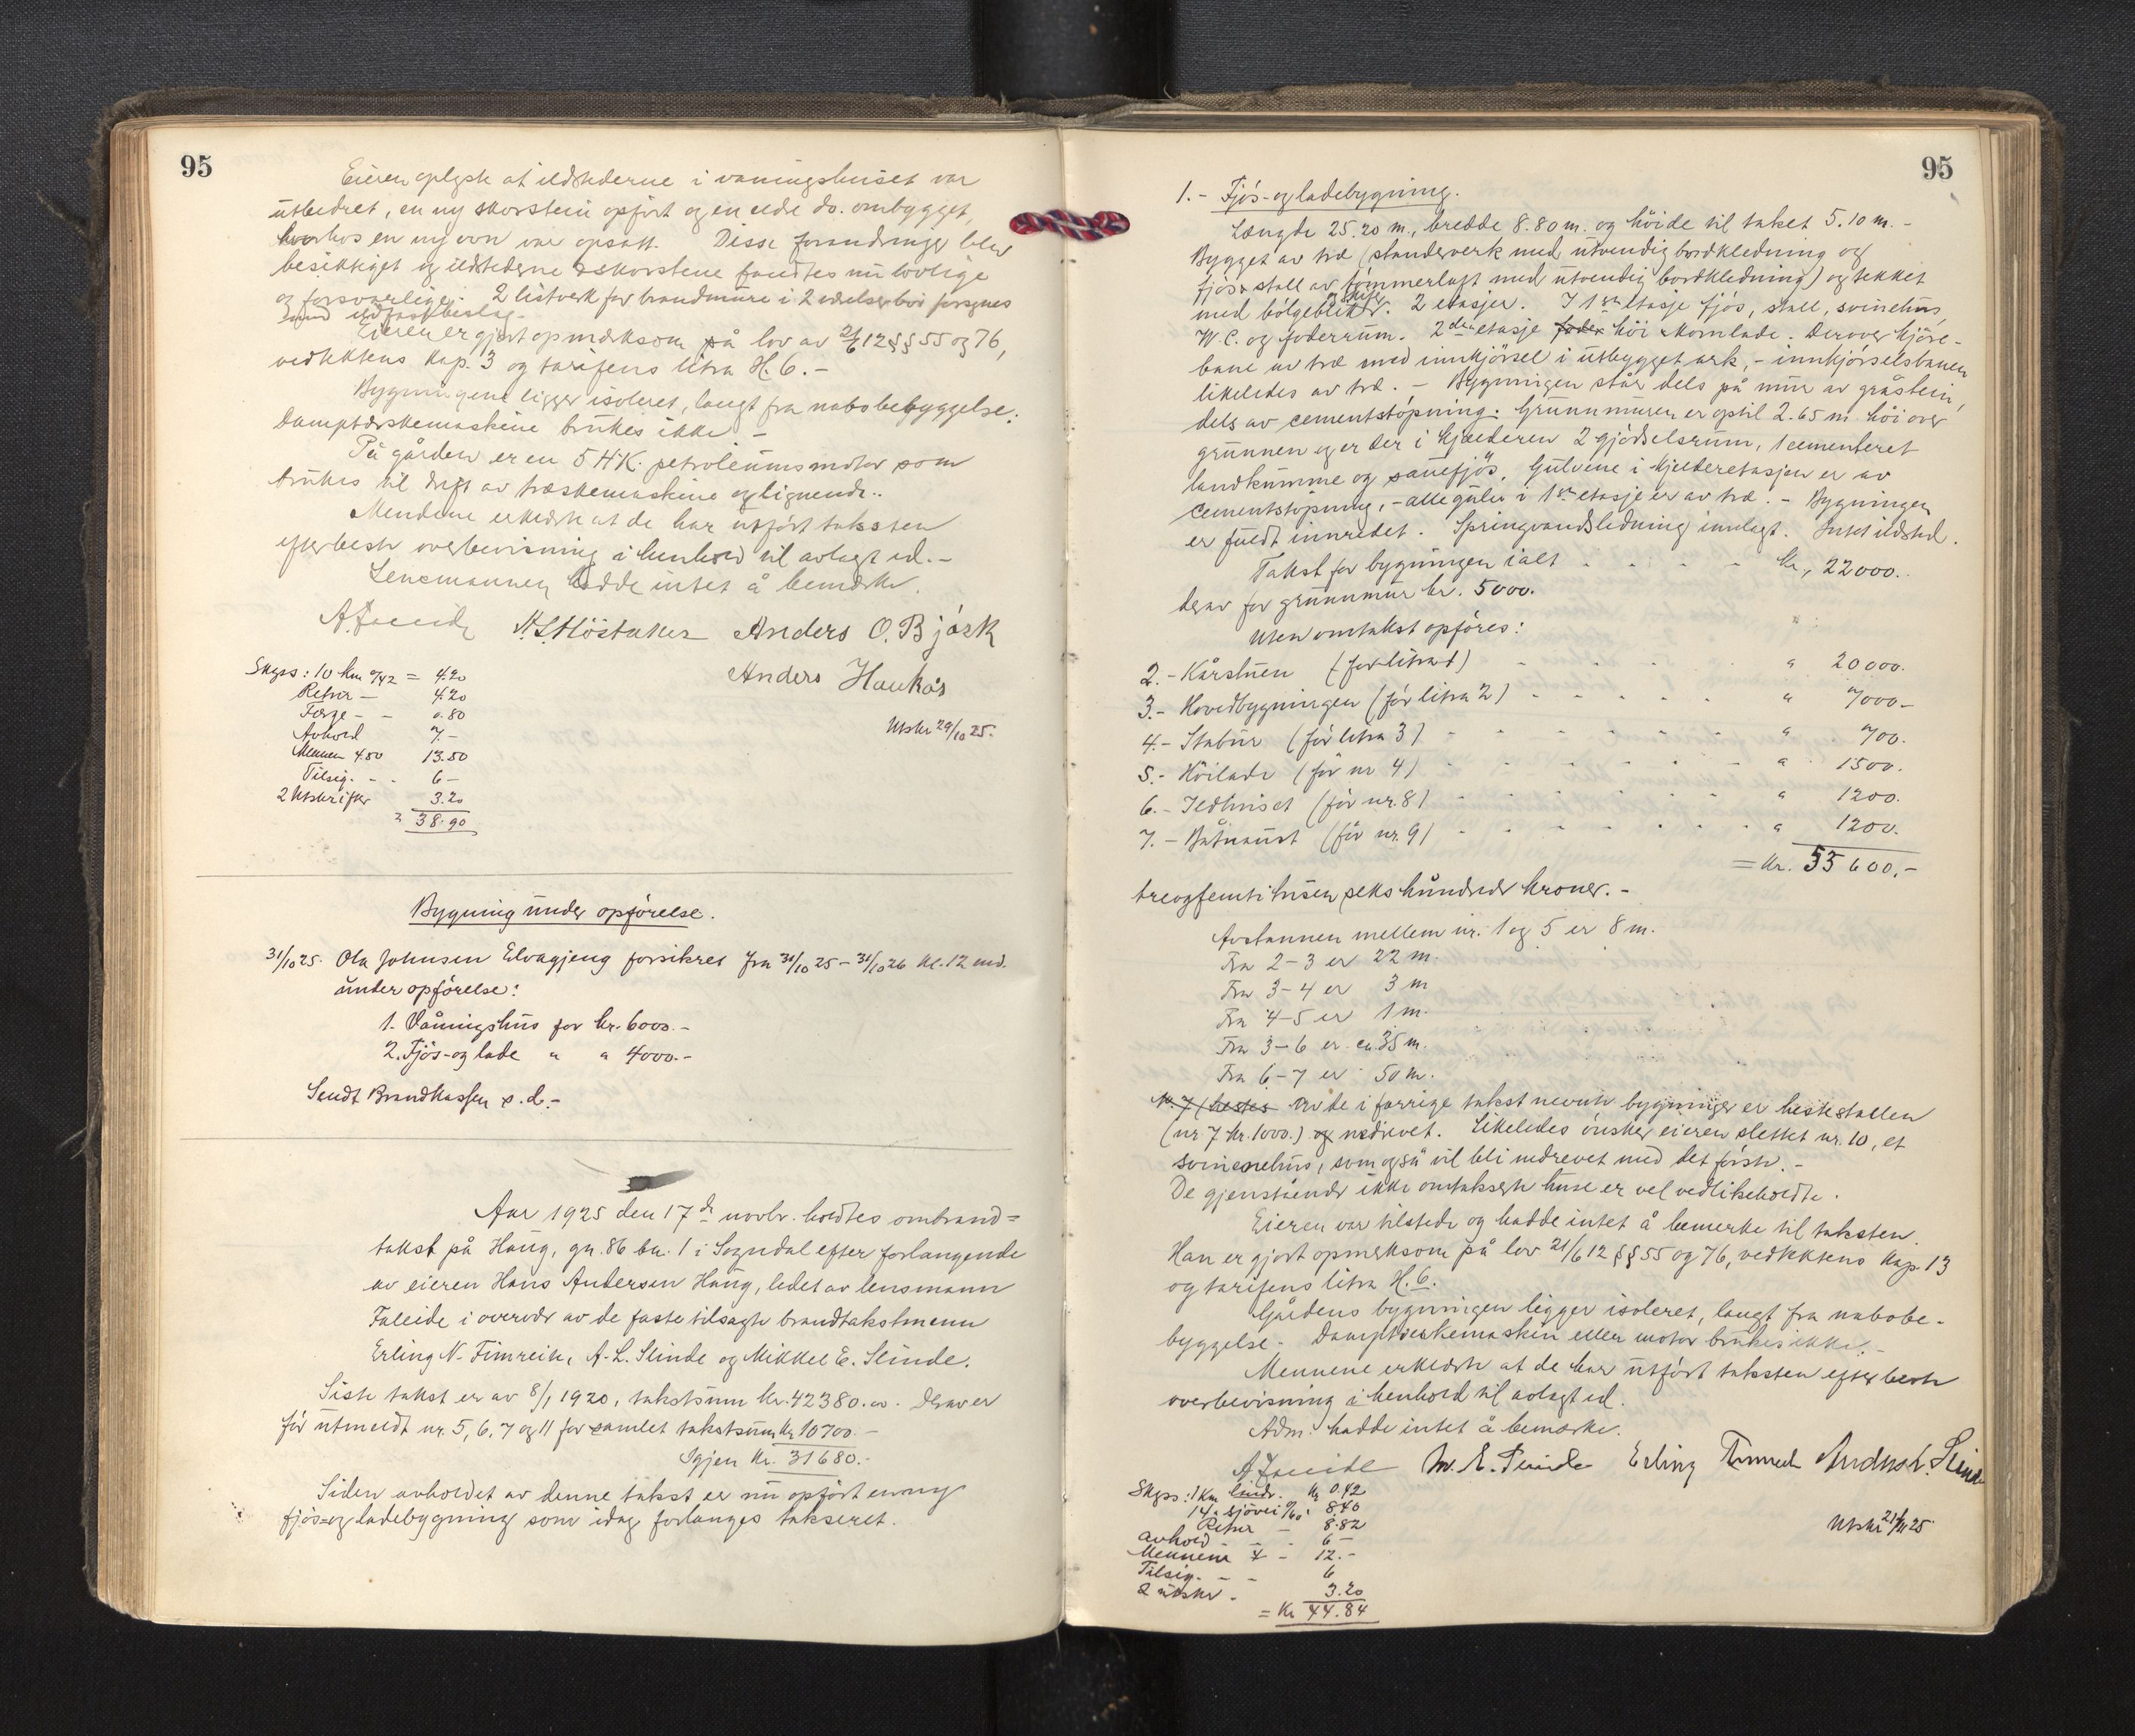 95
Eieren oplyste at ildstederne i vaaningshuset var
utbedret, en ny skorstein opført og en eldre do. ombygget,
hvorhos en ny ovn var opsatt. Disse forandringer blev
besiktiget og ildstederne & skorstene fandtes nu lovlige
og forsvarlige. 2 listverk for brandmure i 2 værelser bør forsynes
med ildfast beslag.
Eieren er gjort opmerksom på lov av 21/6 12 §§ 55 og 76,
vedtektens kap. 3 og tarifens litra H. 6. -
Bygningene ligger isoleret, langt fra nabobebyggelse.
Damptærskemaskine brukes ikke -
På gården er en 5 HK. petroleumsmotor som
brukes til drift av træskemaskine og lignende..
Mendene erklærte at de har utført taksten
efter beste overbevisning i henhold til avlagt ed. -
Lensmannen hadde intet å bemerke.
A. Faleide N. S. Høstaker Anders O. Bjørk
Anders Haukås
Skyss: 10 km a/42 = 4.20
Retur - 4.20
Færge - - 0.80
Avhold 7.-
Mennene 4.50 13.50
Tilsig. - - 6 -
2 Utskrifter 3.20
= 38.90
Utskr 29/10 25.
Bygning under opførelse.
31/10 25. Ola Johnsen Elvagjeng forsikret fra 31/10 25 - 31/10 26 kl. 12 md.
under opførelse:
1. Våningshus for kr. 6000.-
2. Fjøs- og lade " " 4000.-
Sendt Brandkassen s. d.-
Aar 1925 den 17de novbr. holdtes ombrand=
takst på Haug, gn. 86 bn. 1 i Sogndal efter forlangende
av eieren Hans Andersen Haug, ledet av lensmann
Faleide i overvær av de faste tilsagte brandtakstmenn
Erling N. Fimreite, A. L. Slinde og Mikkel E. Slinde.
Siste takst er av 8/1 1920, takstsum kr. 42380.00. Derav er
før utmeldt nr. 5, 6, 7 og 11 for samlet takstsum kr 10700.-
Igjen kr. 31680.-
Siden avholdet av denne takst er nu opført en ny
fjøs- og ladebygning som idag forlanges takseret.
95
1. - Fjøs- og ladebygning.
Længde 25.20 m., bredde 8.80 m. og høide til taket 5.10 m. -
Bygget av træ (standerverk med utvendig bordkledning og
fjøs & stall av tømmerlaft med utvendig bordkledning) og tekket
med bølgeblikk og skifer. 2 etasjer. I 1ste etasje fjøs, stall, svinehus,
W.C. og foderrum. 2den etasje foder høi & kornlade. Derover kjøre-
bane av træ med innkjørsel i utbygget ark, - innkjørselsbanen
likeledes av træ. - Bygningen står dels på mur av gråstein,
dels av cementstøpning. Grunnmuren er optil 2.65 m. høi over
grunnen og er der i kjælderen 2 gjødselsrum, 1 cementeret
landkumme og sauefjøs. Gulvene i kjelderetasjen er av
cementstøpning, - alle gulv i 1ste etasje er av træ. - Bygningen
er fuldt innredet. Springvandsledning innlagt. Intet ildsted.
Takst for bygningen ialt - - - - kr. 22000.
derav for grunnmur kr. 5000.
Uten omtakst opføres:
2. - Kårstuen (før litra 1) - - - - " 20000.
3. - Hovedbygningen (før litra 2) - - - - " 7000.-
4. - Stabur (før litra 3) - - - - " 700.
5. - Høilade (før nr 4) - - - - " 1500.
6. - Ildhuset (før nr. 8) - - - - " 1200.
7. - Båtnaust (før nr. 9) - - - - " 1200.
= Kr. 53600,-
treogfemtitusen seks hundrede kroner. -
Avstannen mellem nr. 1 og 5 er 8 m.
Fra 2-3 er 22 m.
Fra 3-4 er 3 m
Fra 4-5 er 1 m.
Fra 3-6 er ca 35 m.
Fra 6-7 er 50 m.
Nr. 7 (hestes Av de i forrige takst nevnte bygninger er hestestallen
(nr 7 kr. 1000.) og nedrevet. Likeledes ønsker eieren slettet nr. 10, et
svinehus, som også vil bli nedrevet med det første. -
De gjenstående ikke omtakserte huse er vel vedlikeholdte.
Eieren var tilstede og hadde intet å bemerke til taksten.
Han er gjort opmerksom på lov 21/6 12 §§ 55 og 76, vedtektens kap. 13
og tarifens litra H. 6.
Gårdens bygninger ligger isoleret, langt fra nabobe-
byggelse. Damptærskemaskin eller motor brukes ikke. -
Mennene erklærte at de har utført taksten efter beste
overbevisning i henhold til avlagt ed.
Adm. hadde intet å bemerke.
A. Faleide M. E. Slinde Erling Fimreite Andreas L. Slinde
Skyss: 1 km landv. kr 0.42
14 " sjøvei a/60: 8.40
Retur - 8.82
Avhold - - - 6 -
Mennene 4 - 12.-
Tilsig. - - 6
2 utskr - 3.20
= Kr 44.84
Utskr 21/11 25